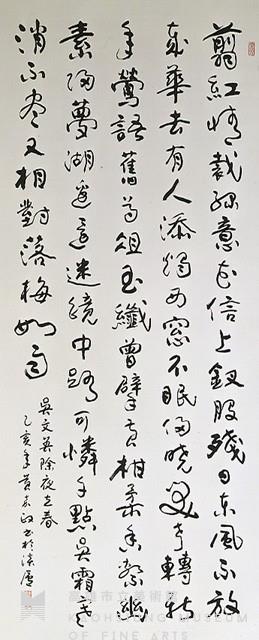 翦紅情裁綠意花信上釵股殘日東風不放
歲華去有人添燭西窗不眠侵曉笑聲轉新
年鶯語舊尊俎玉纖曾擘黃柑柔香繫幽
素歸夢湖邊還迷鏡中路可憐千點吳霜寒
消不盡又相對落梅如雨
吳文英除夜立春
乙亥年黃友政書於
高雄市立美術館
KAOHSIUNG MUSEUM
OF FINE ARTS